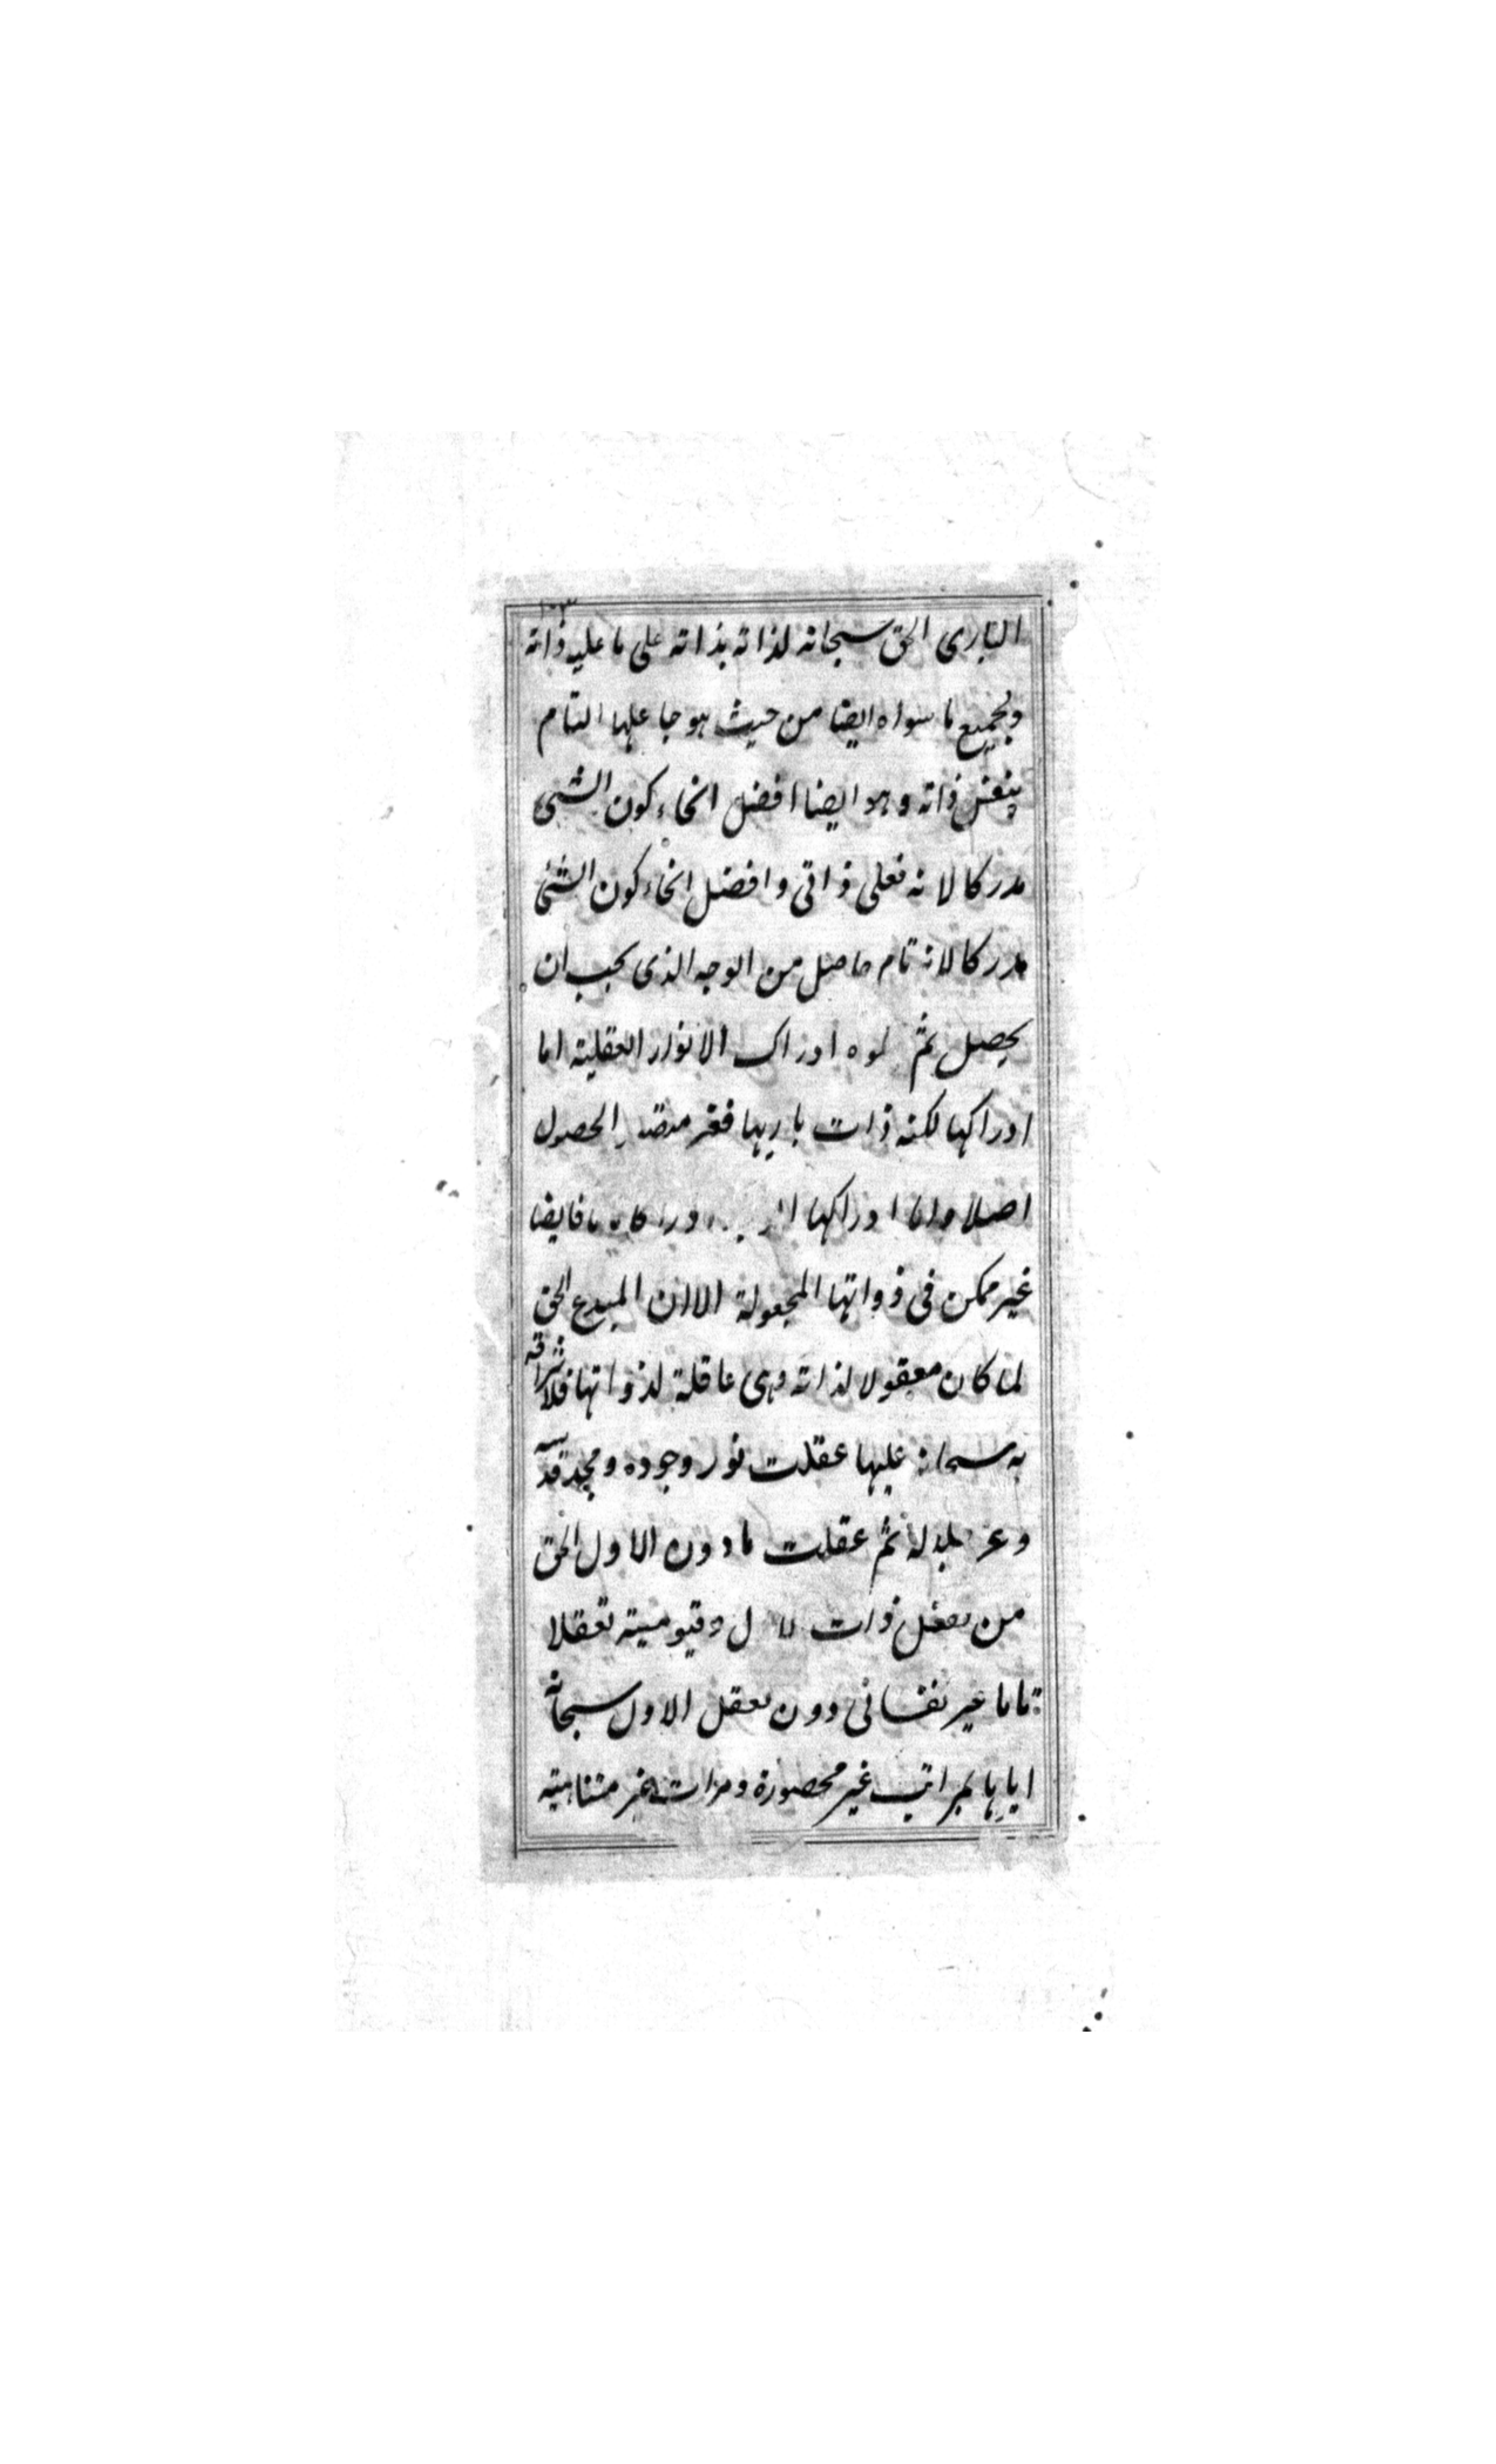 ١٠٣
البارى الحق سبحانه لذاته بذاته على ما عليه ذاته
وبجميع ما سواه ايضا من حيث هو جاعلها التام
بنفس ذاته وهو ايضا افضل انحاء كون الشئ
مدركا لانه فعلى ذاتى وافضل انحاء كون الشئ
مدركا لانه تام حاصل من الوجه الذى يجب ان
يحصل ثم ادراك الانوار العقلية اما
ادراكها لكنه ذات باريها فغير الحصول
اصلا واما ادراكها
غير ممكن فى ذواتها المجعولة الا ان المبدع الحق
لما كان معقولا لذاته وهى عاقلة لذواتها فلاشراقه
به سبحانه عليها عقلت نور وجوده ومجد قدسه
وعز جلاله ثم عقلت ما دون الاول الحق
من ذات وقيوميته تعقلا
تاما غير نفسانى دون تعقل الاول سبحانه
اياها بمراتب غير محصورة ومرات غير متناهية